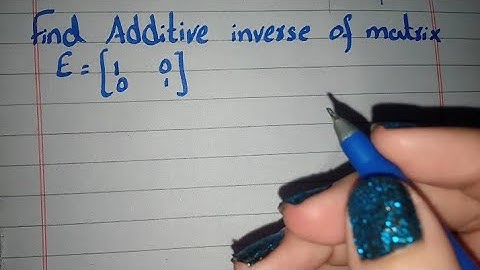 Find Additive inverse of matrix
E = [1 0
0 1]